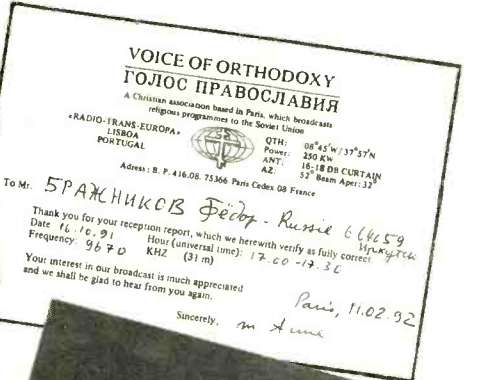 VOICE OF ORTHODOXY
ГОЛОС ПРАВОСЛАВИЯ
A Christian association based in Paris, which broadcasts
religious programmes to the Soviet Union
«RADIO-TRANS-EUROPA»
LISBOA
PORTUGAL
QTH: 08°45'W/37°57'N
Power: 250 KW
ANT: 16-18 DB CURTAIN
AZ: 52° Beam Aper: 32°
Adress: B. P. 416.08. 75366 Paris Cedex 08 France
To Mr. БРАЖНИКОВ Фёдор - Russie 664059
Иркутск
Thank you for your reception report, which we herewith verify as fully correct
Date 16.10.91 Hour (universal time): 17.00 -17.30
Frequency: 9670 KHZ (31 m)
Your interest in our broadcast is much appreciated
and we shall be glad to hear from you again.
Paris, 11.02.92
Sincerely,